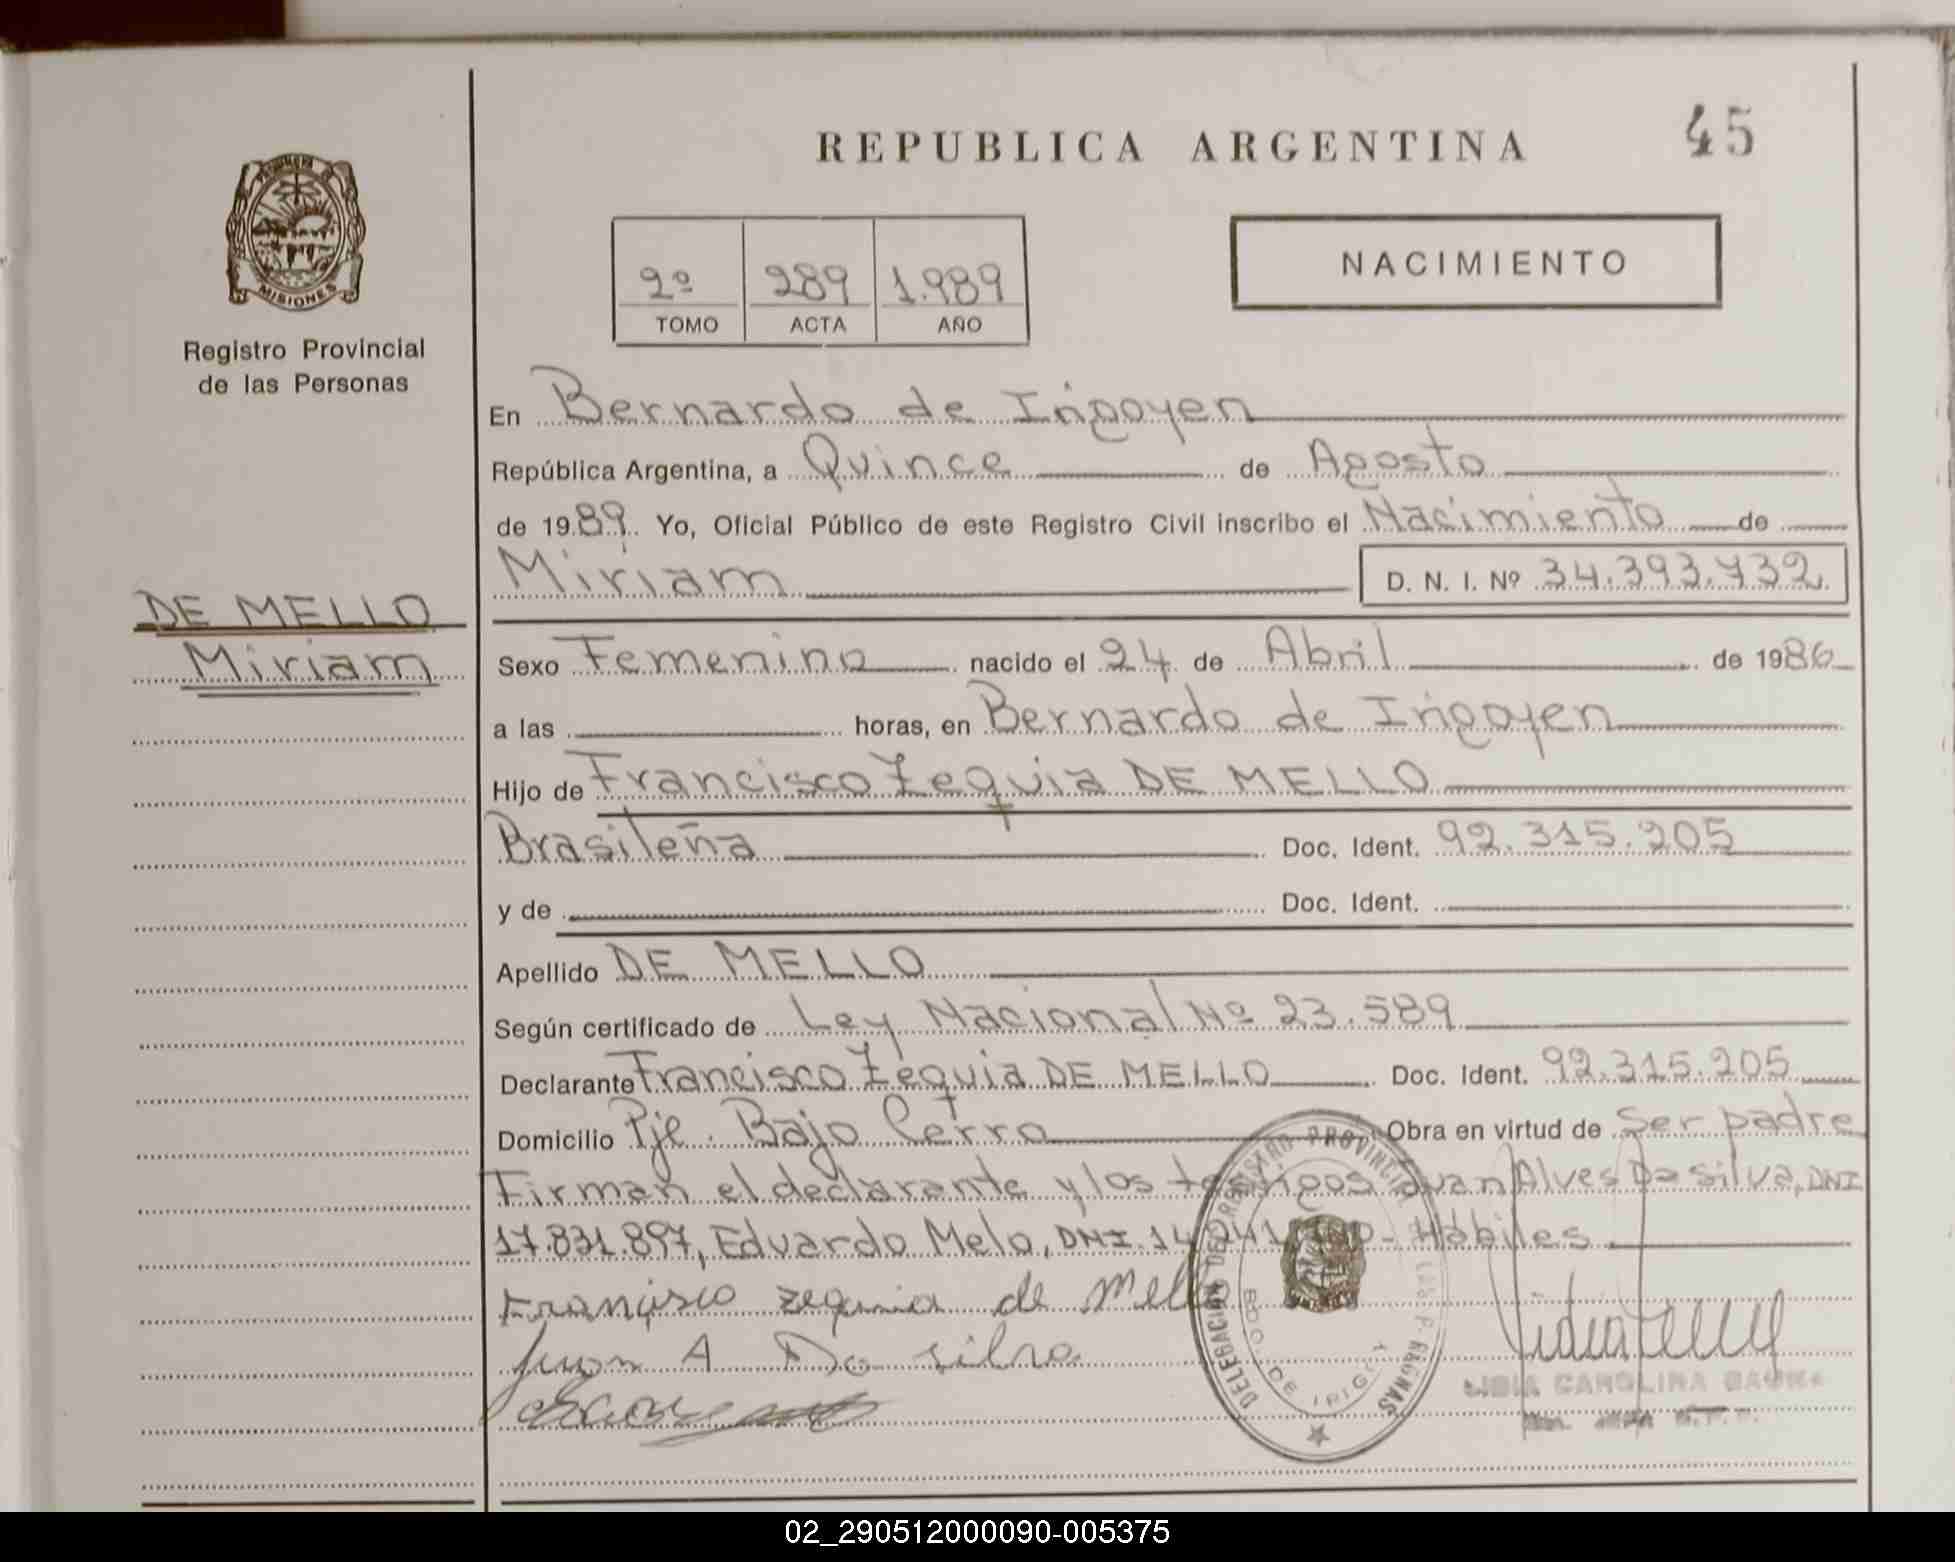 REPUBLICA ARGENTINA
45
PROVINCIA DE
MISIONES
Registro Provincial
de las Personas
2º 289 1.989
TOMO ACTA AÑO
NACIMIENTO
En Bernardo de Irigoyen
República Argentina, a Quince de Agosto
de 1989. Yo, Oficial Público de este Registro Civil inscribo el Nacimiento de
Miriam D. N. I. Nº 34.393.732.
DE MELLO
Miriam
Sexo Femenino nacido el 24 de Abril de 1986
a las horas, en Bernardo de Irigoyen
Hijo de Francisco Zequia DE MELLO
Brasileña Doc. Ident. 92.315.205
y de Doc. Ident.
Apellido DE MELLO
Según certificado de Ley Nacional Nº 23.589
Declarante Francisco Zequia DE MELLO Doc. Ident. 92.315.205
Domicilio Pje. Bajo Cerro Obra en virtud de Ser padre
Firman el declarante y los testigos Juan Alves Da Silva, DNI
17.831.897, Eduardo Melo, DNI. 14.241. - Hábiles
Francisco zequia de Mello
Juan A Da silva
DELEGACION DEL REGISTRO PROVINCIAL DE LAS P
BDO. DE IRIGOY
LIDIA CAROLINA
02_290512000090-005375